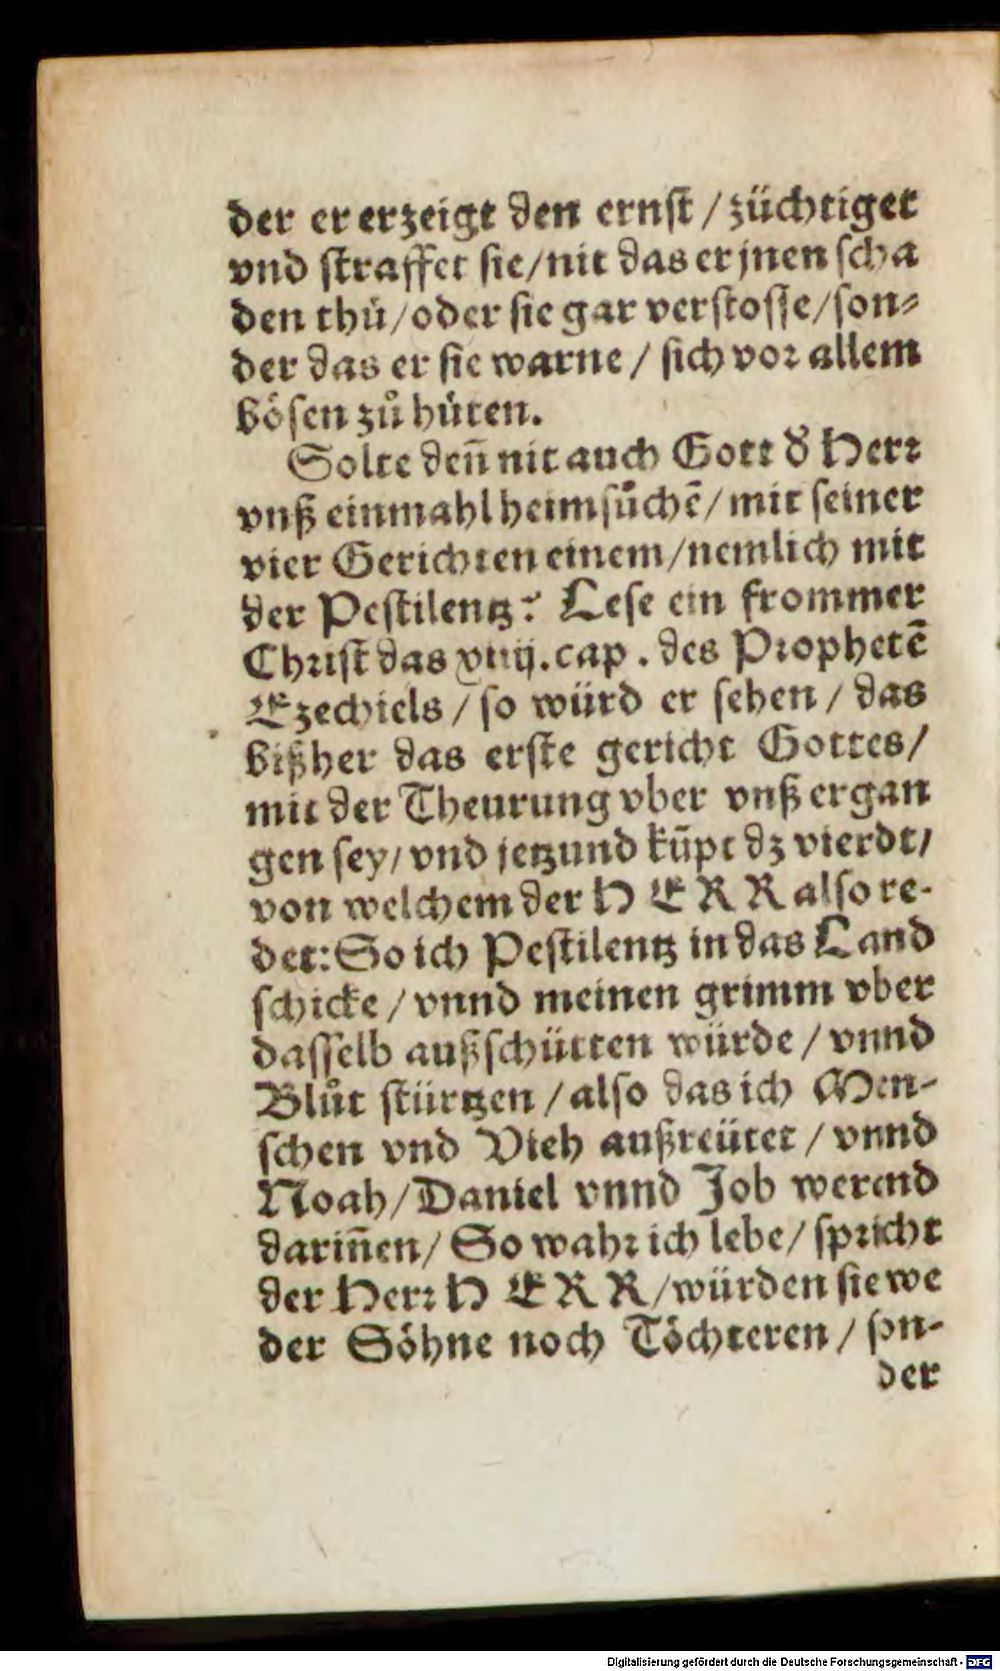 der er erzeigt den ernst / züchtiget
vnd straffet sie/nit das er jnen scha
den thuͤ/oder sie gar verstosse/son⸗
der das er sie warne / sich vor allem
boͤsen zuͦ huͤten.
Solte deñ nit auch Gott d̕ Herr
vnß einmahl heimsuͦchē/ mit seiner
vier Gerichten einem/nemlich mit
der Pestilentz? Lese ein frommer
Christ das xiiij.cap. des Prophetē
Ezechiels / so würd er sehen / das
bißher das erste gericht Gottes/
mit der Theurung vber vnß ergan
gen sey/ vnd jetzund kūpt dz vierdt/
von welchem der HERR also re-
det: So ich Pestilentz in das Land
schicke / vnnd meinen grimm vber
dasselb außschütten würde / vnnd
Bluͦt stürtzen / also das ich Men-
schen vnd Vieh außreütet / vnnd
Noah/Daniel vnnd Job werend
dariñen/ So wahr ich lebe/ spricht
der Herr HERR/würden sie we
der Soͤhne noch Toͤchteren / son-
der
Digitalisierung gefördert durch die Deutsche Forschungsgemeinschaft - DFG